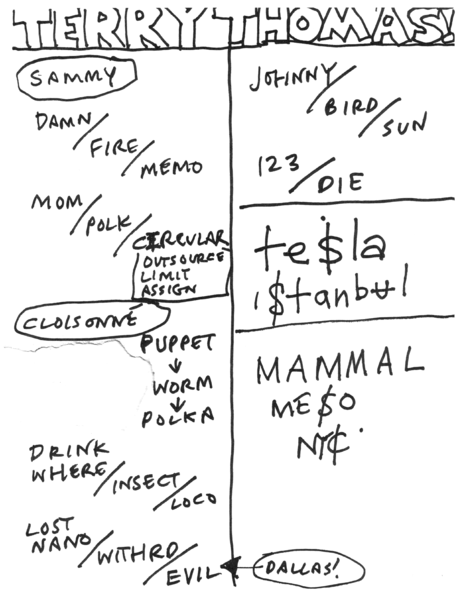 TERRY THOMAS!
SAMMY
DAMN/
FIRE/
MEMO
MOM/
POLK/
CIRCULAR
OUTSOURCE
LIMIT
ASSIGN
CLOISONNÉ
PUPPET
↓
WORM
↓
POLKA
DRINK
WHERE/
INSECT/
LOCO
LOST
NANO/
WITHRD/
EVIL
DALLAS!
JOHNNY/
BIRD/
SUN
123/
DIE
te$la
i$tanbul
MAMMAL
ME$O
NY¢